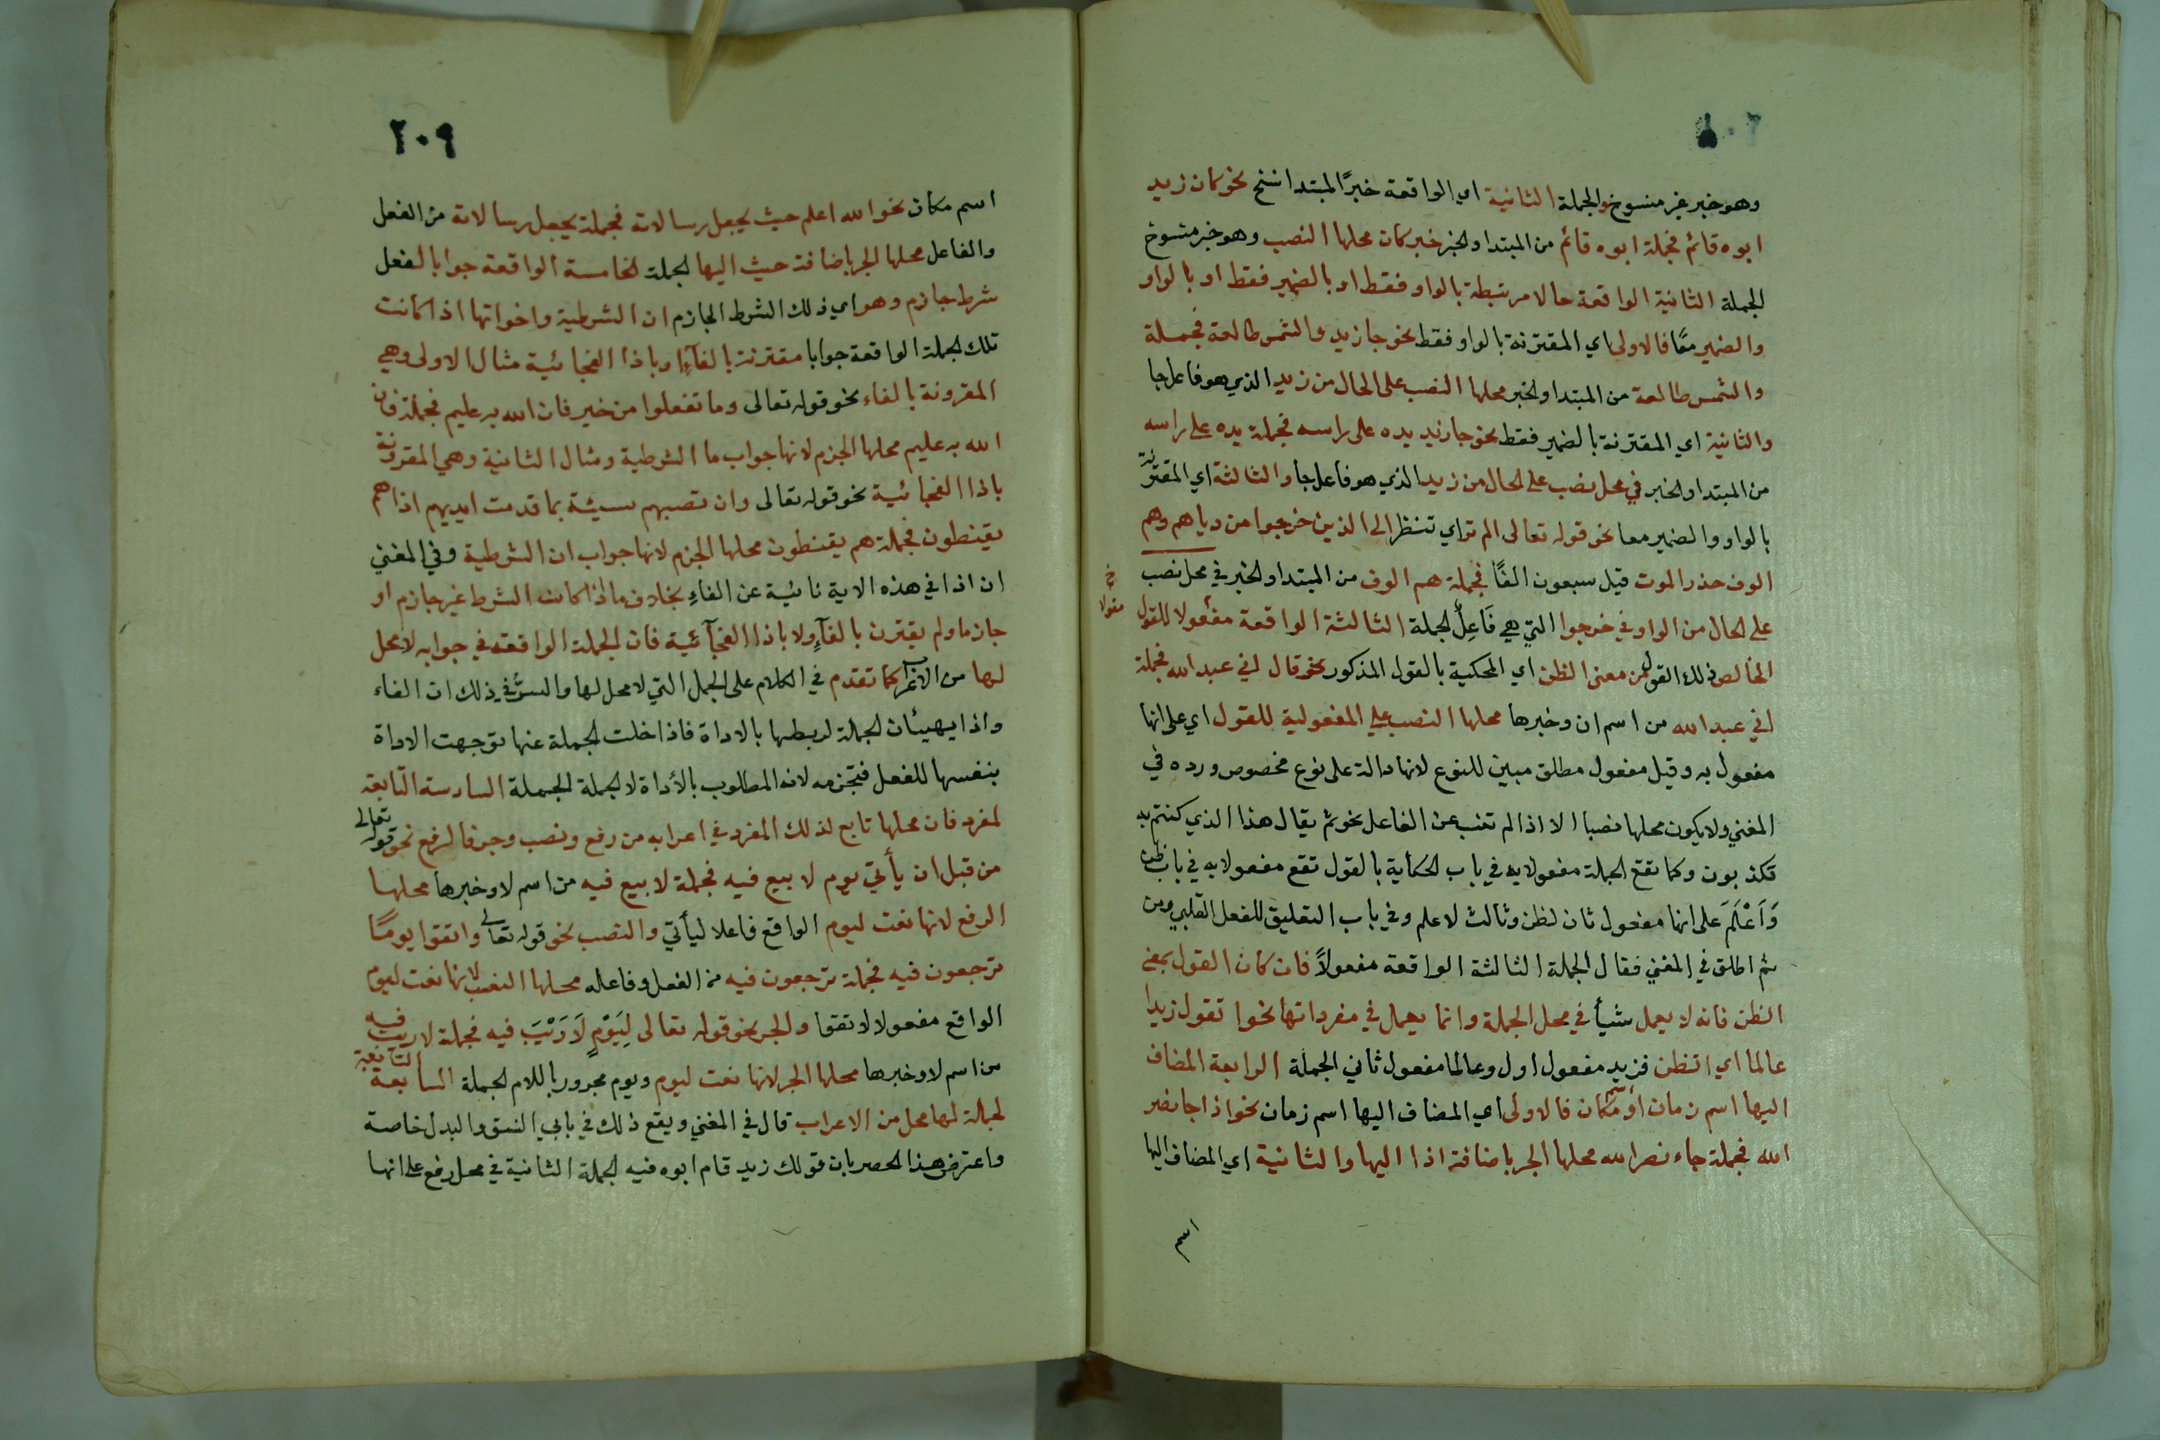 وهو خبر غير منسوخ والجملة الثانية اي الواقعة خبرًا لمبتدا نسخ نحو كان زيد
ابوه قائم فجملة ابوه قائم من المبتدا والخبر خبر كان محلها النصب وهو خبر منسوخ
الجملة الثانية الواقعة حالا مرتبطة بالواو فقط او بالضمير فقط او بالواو
والضمير معًا فالاولى اي المقترنة بالواو فقط نحو جا زيد والشمس طالعة فجملة
والشمس طالعة من المبتدا والخبر محلها النصب على الحال من زيد الذي هو فاعل جا
والثانية اي المقترنة بالضمير فقط نحو جا زيد يده على راسه فجملة يده على راسه
من المبتدا والخبر في محل نصب على الحال من زيد الذي هو فاعل جا والثالثة اي المقترنة
بالواو والضمير معا نحو قوله تعالى الم تر اي تنظر الى الذين خرجوا من ديارهم وهم
الوف حذر الموت قيل سبعون الفًا فجملة هم الوف من المبتدا والخبر في محل نصب
على الحال من الواو في خرجوا التي هي فَاعِلٌ الجملة الثالثة الواقعة مفعولا للقول
خ مقولا
الخالص ذلك القول من معنى الظن اي المحكية بالقول المذكور نحو قال اني عبد الله فجملة
اني عبد الله من اسم ان وخبرها محلها النصب على المفعولية للقول اي على انها
مفعول به وقيل مفعول مطلق مبين للنوع لانها دالة على نوع مخصوص ورده في
المغني ولا يكون محلها نصبا الا اذا لم تنب عن الفاعل نحو ثم يقال هذا الذي كنتم به
تكذبون وكما تقع الجملة مفعولا به في باب الحكاية بالقول تقع مفعولا به في باب ظن
وَاَعْلَمَ على انها مفعول ثان لظن وثالث لاعلم وفي باب التعليق للفعل القلبي ومن
ثم اطلق في المغني فقال الجملة الثالثة الواقعة مفعولاً فان كان القول بمعنى
الظن فانه لا يعمل شيأ في محل الجملة وانما يعمل في مفرداتها نحو اتقول زيدا
عالما اي اتظن فزيد مفعول اول وعالما مفعول ثاني الجملة الرابعة المضاف
اليها اسم زمان او اسم مكان فالاولى اي المضاف اليها اسم زمان نحو اذا جا نصر
الله فجملة جاء نصر الله محلها الجر باضافة اذا اليها والثانية اي المضاف اليها
اسم
٢٠٩
اسم مكان نحو الله اعلم حيث يجعل رسالاته فجملة يجعل رسالاته من الفعل
والفاعل محلها الجر باضافة حيث اليها الجملة الخامسة الواقعة جوابا لفعل
شرط جازم وهو اي ذلك الشرط الجازم ان الشرطية واخواتها اذا كانت
تلك الجملة الواقعة جوابا مقترنة بالفآءِ او باذا الفجائية مثال الاولى وهي
المقرونة بالفاء نحو قوله تعالى وما تفعلوا من خير فان الله به عليم فجملة فان
الله به عليم محلها الجزم لانها جواب ما الشرطية ومثال الثانية وهي المقرونة
باذا الفجائية نحو قوله تعالى وان تصبهم سيئة بما قدمت ايديهم اذا هم
يقنطون فجملة هم يقنطون محلها الجزم لانها جواب ان الشرطية وفي المغني
ان اذا في هذه الاية نائبة عن الفاءِ بخلاف ما اذا كانت الشرط غير جازم او
جازما ولم يقترن بالفآءِ ولا باذا الفجآئية فان الجملة الواقعة في جوابه لا محل
لها من الاعراب كما تقدم في الكلام على الجمل التي لا محل لها والسرُّ في ذلك ان الفاء
واذا يهيئان الجملة لربطها بالاداة فاذا خلت الجملة عنها توجهت الاداة
بنفسها للفعل فتجزمه لانه المطلوب بالأداة لا الجملة الجملة السادسة التّابعة
لمفرد فان محلها تابع لذلك المفرد في اعرابه من رفع ونصب وجر فالرفع نحو قوله تعالى
من قبل ان يأتي يوم لا بيع فيه فجملة لا بيع فيه من اسم لا وخبرها محلها
الرفع لانها نعت ليوم الواقع فاعلا ليأتي والنصب نحو قوله تعالى واتقوا يومًا
ترجعون فيه فجملة ترجعون فيه من الفعل وفاعله محلها النصب لانها نعت ليوم
الواقع مفعولا لاتقوا والجر نحو قوله تعالى لِيَوْمٍ لَا رَيْبَ فيه فجملة لا ريب فيه
من اسم لا وخبرها محلها الجر لانها نعت ليوم ويوم مجرور باللام الجملة السابعة التابعة
لجملة لها محل من الاعراب قال في المغني ويقع ذلك في بابي النسق والبدل خاصة
واعترض هذا الحصر بان قولك زيد قام ابوه فيه الجملة الثانية في محل رفع على انها